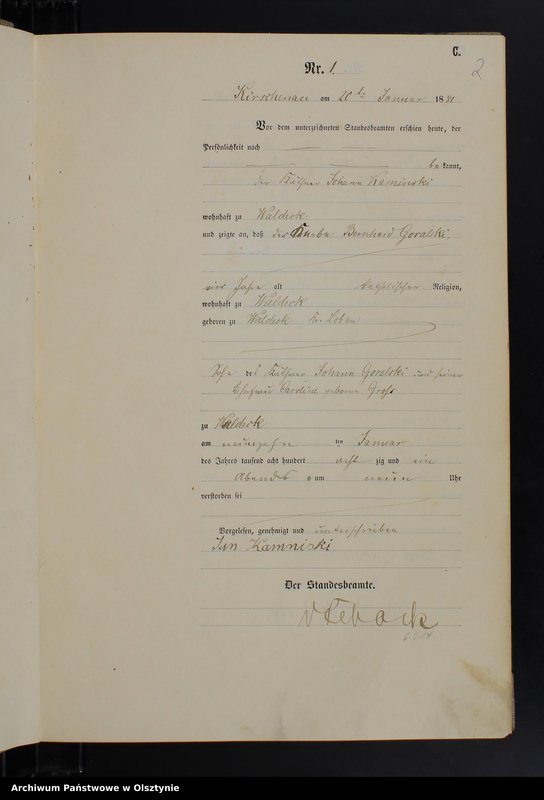 C.
2
Nr. 1.
Kirschenau am 20ten Januar 1881
Vor dem unterzeichneten Standesbeamten erschien heute, der
Persönlichkeit nach
bekannt,
der Käthner Johann Kaminski
wohnhaft zu Waldeck
und zeigte an, daß der Knabe Bernhard Goralski
vier Jahre alt katholischer Religion,
wohnhaft zu Waldeck
geboren zu Waldeck Kr. Löbau
Sohn des Käthner Johann Goralski und seiner
Ehefrau Caroline geborne Groß
zu Waldeck
am neunzehn ten Januar
des Jahres tausend acht hundert acht zig und ein
Abends um neun Uhr
verstorben sei
Vorgelesen, genehmigt und unterschrieben
Jan Kamniski
Der Standesbeamte.
Archiwum Państwowe w Olsztynie